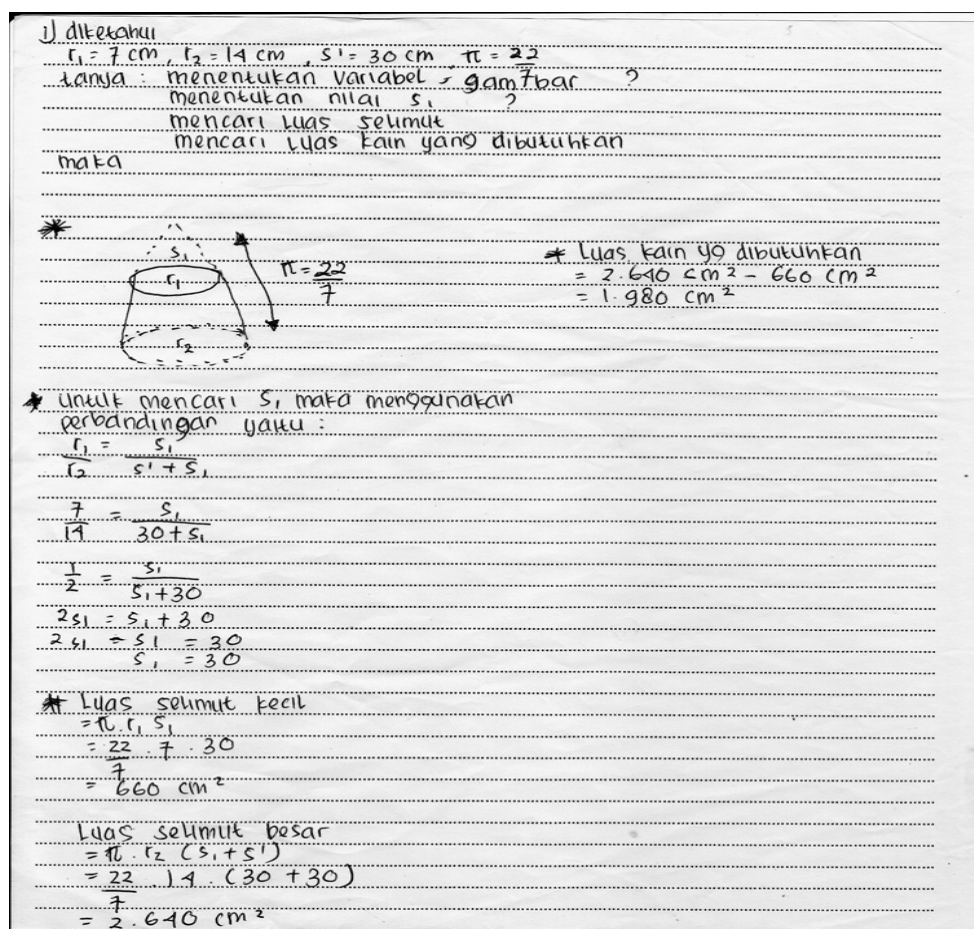 1) diketahui
r₁ = 7 cm, r₂ = 14 cm, s' = 30 cm, π = 22/7
tanya : menentukan variabel, gambar ?
menentukan nilai s₁ ?
mencari luas selimut
mencari luas kain yang dibutuhkan
maka
*
s₁
r₁
r₂
π = 22/7
* Luas kain yg dibutuhkan
= 2.640 cm² - 660 cm²
= 1.980 cm²
* Untuk mencari s₁ maka menggunakan
perbandingan yaitu :
r₁/r₂ = s₁/(s' + s₁)
7/14 = s₁/(30 + s₁)
1/2 = s₁/(s₁ + 30)
2s₁ = s₁ + 30
2s₁ - s₁ = 30
s₁ = 30
* Luas selimut kecil
= π . r₁ s₁
= 22/7 . 7 . 30
= 660 cm²
Luas selimut besar
= π . r₂ (s₁ + s')
= 22/7 . 14 . (30 + 30)
= 2.640 cm²